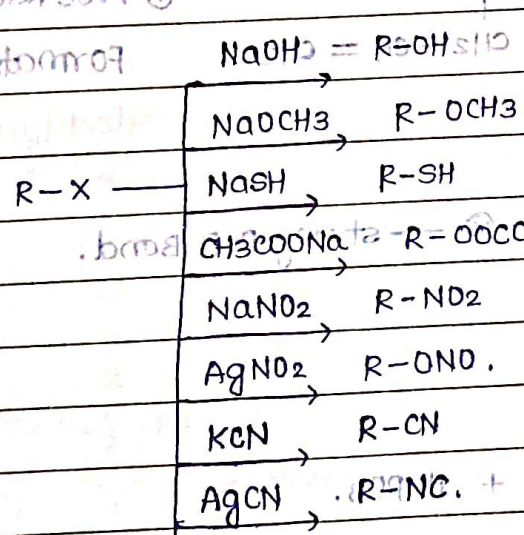 NaOH = R-OH
NaOCH3 R-OCH3
R-X NaSH R-SH
CH3COONa R-OOCC
NaNO2 R-NO2
AgNO2 R-ONO.
KCN R-CN
AgCN R-NC.